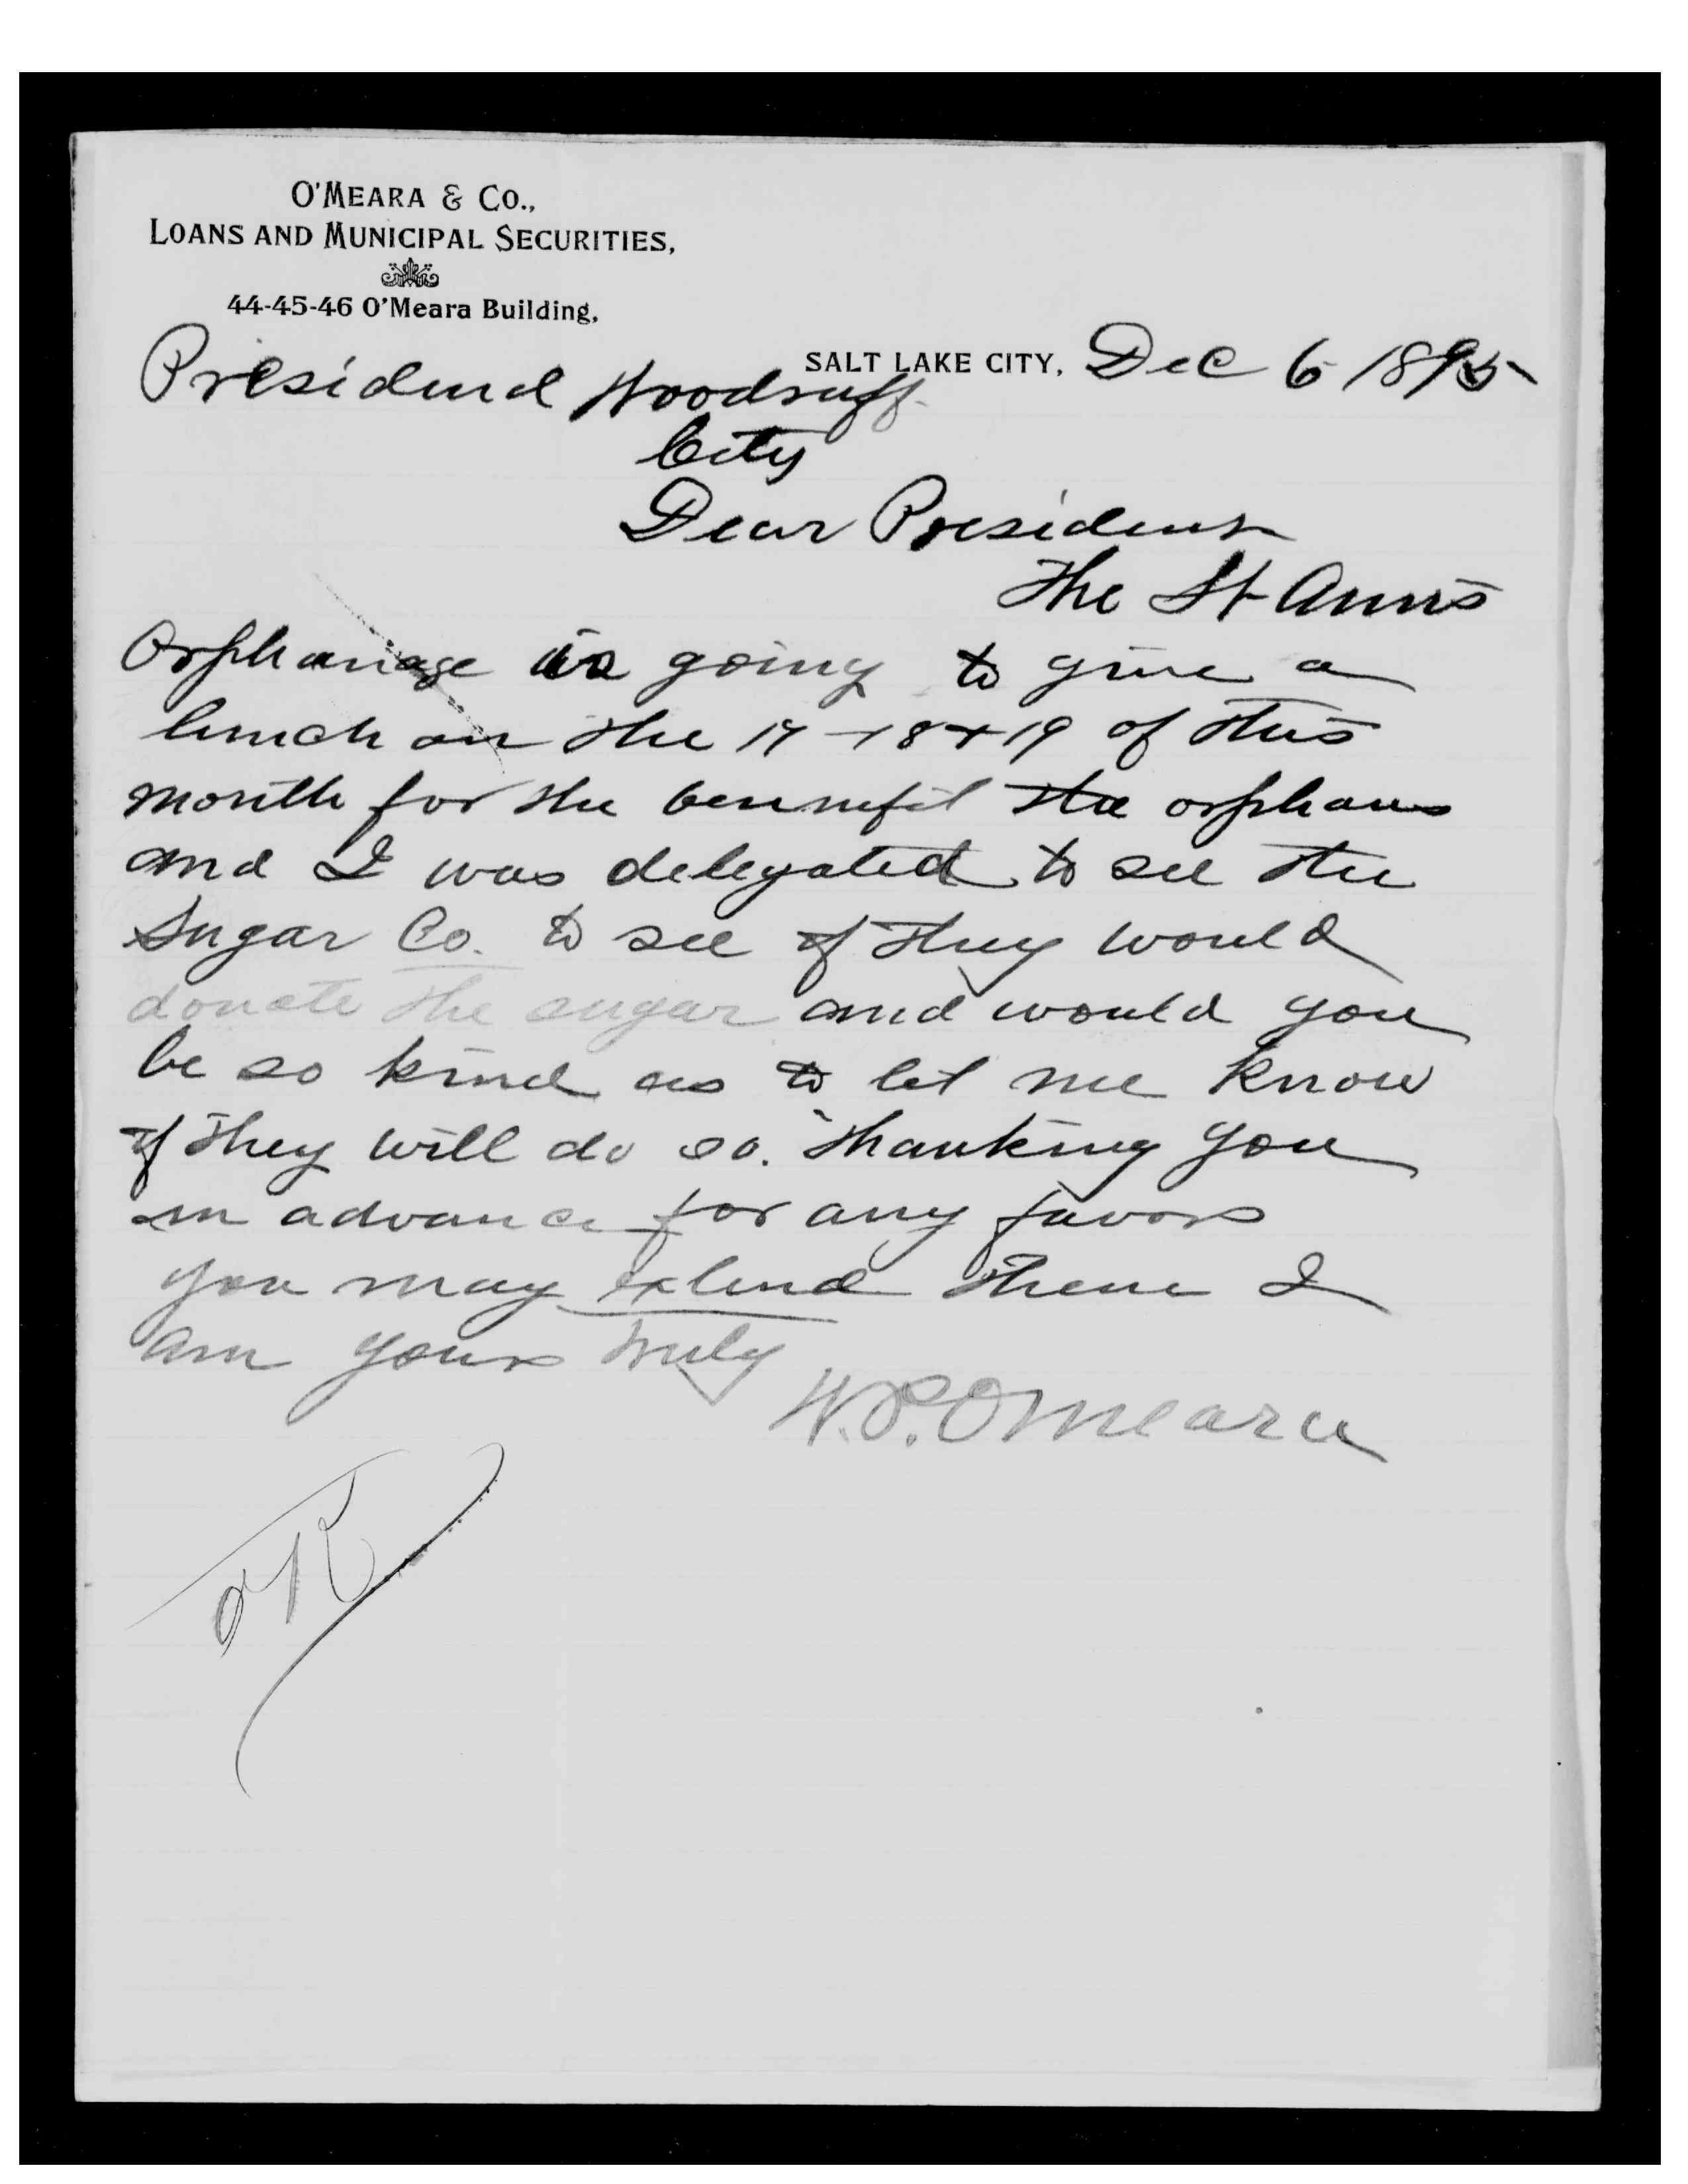 O'MEARA & CO.,
LOANS AND MUNICIPAL SECURITIES,
44-45-46 O'Meara Building,
SALT LAKE CITY, Dec 6 1895
President Woodruff
City
Dear President
The St Anns
Orphanage is going to give a
lunch on the 17-18+19 of this
month for the bennefit the orphans
and I was delegated to see the
Sugar Co. to see if they would
donate the sugar and would you
be so kind as to let me know
if they will do so. Thanking you
in advance for any favors
you may extend them I
am yours truly
W.P. OMeara
OK